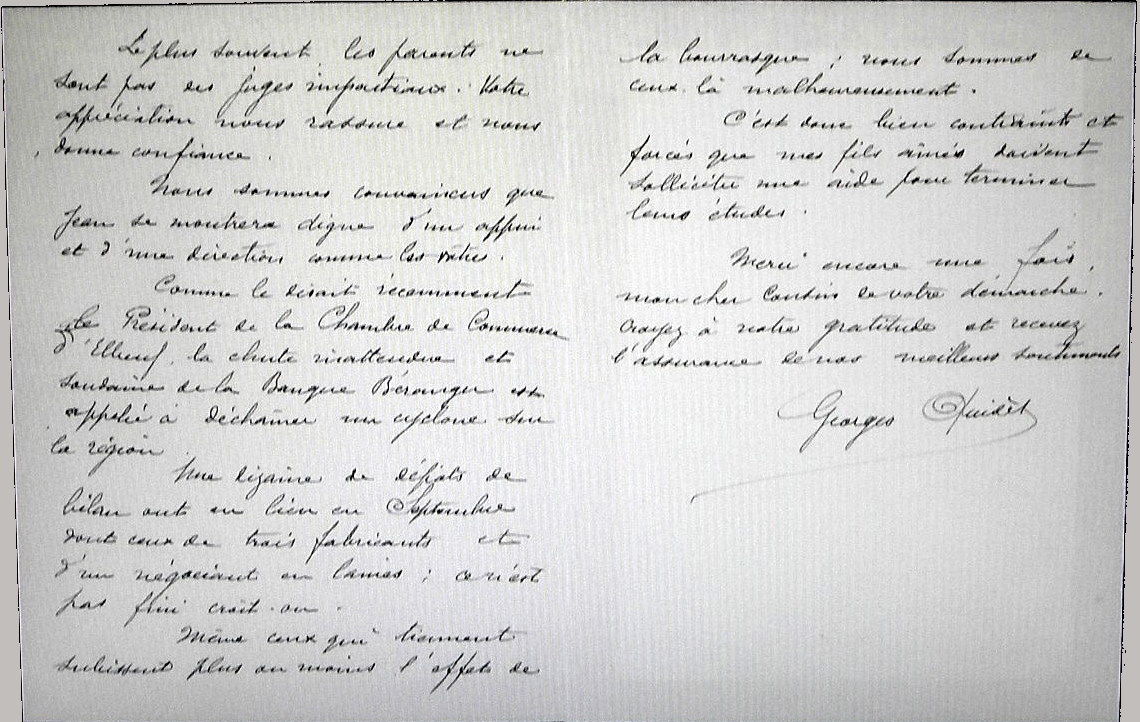 Le plus souvent les parents ne
sont pas des juges impartiaux. Votre
appréciation nous rassure et nous
donne confiance.
Nous sommes convaincus que
Jean se montrera digne d'un appui
et d'une direction comme les vôtres.
Comme le disait récemment
le Président de la Chambre de Commerce
d'Elbeuf, la chute inattendue et
soudaine de la Banque Béranger est
appelée à déchaîner un cyclone sur
la région
Une dizaine de dépôts de
bilan ont eu lieu en Septembre
dont ceux de trois fabricants et
d'un négociant en laines ; ce n'est
pas fini croit-on.
Même ceux qui tiennent
subissent plus ou moins l'effets de
la bourrasque ; nous sommes de
ceux là malheureusement.
C'est donc bien contraints et
forcés que mes fils aînés doivent
solliciter une aide pour terminer
leurs études.
Merci encore une fois,
mon cher Cousin de votre démarche.
Croyez à notre gratitude et recevez
l'assurance de nos meilleurs sentiments
Georges